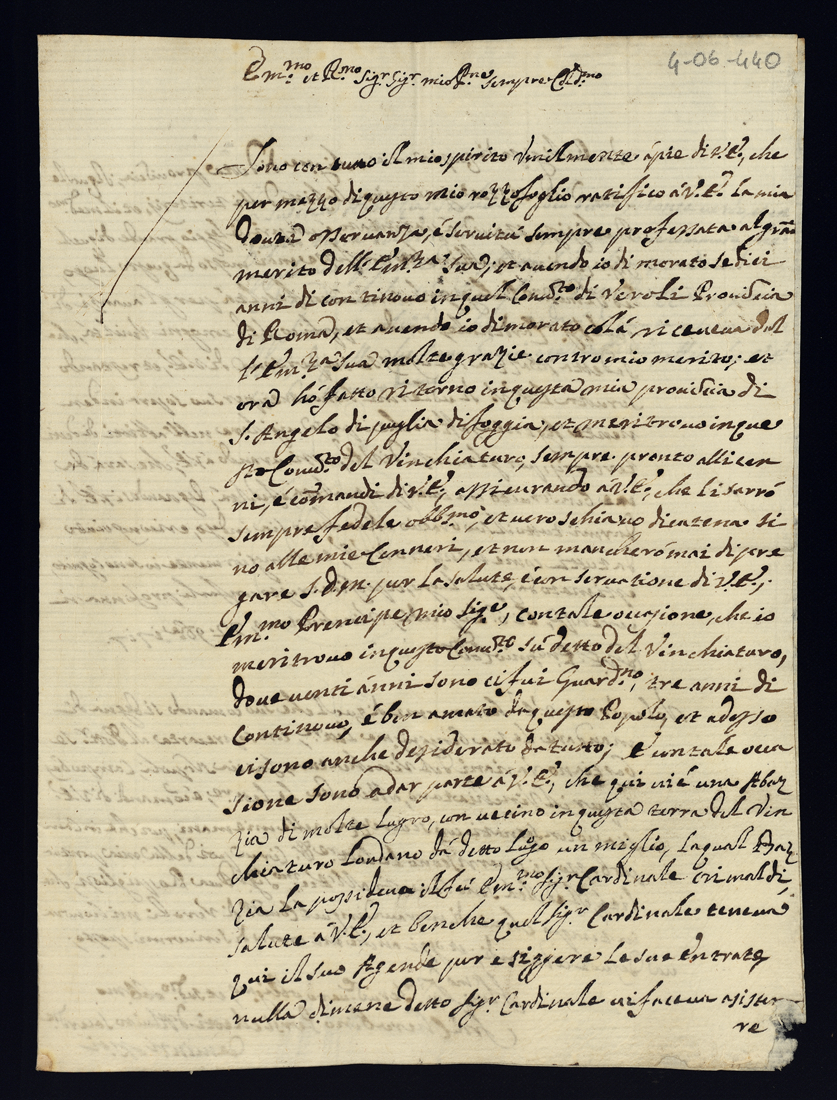 4-06-440
Em.mo et R.mo Sig.r Sig.r mio P.ne sempre Col.mo
Sono con tutto il mio spirito Umilmente á pie di V.E., che
per mezzo di questo mio rozzo foglio ratifico á V.E. la mia
douta osservanza, é servitú sempre professata al gran
merito dell'Em.za Sua; et avendo io dimorato sedici
anni di continovo in quel Conu.to di Veroli Provincia
di Roma, et avendo io dimorato colá riceveva dal
l'Em.za Sua molte grazie contro mio merito; et
ora hó fatto ritorno in questa mia provincia di
S. Angelo di puglia di foggia, et mi ritrovo in que
sto Conu.to del Vinchiaturo, sempre pronto alli cen
ni, é com̃andi di V.E., assicurando á V.E., che li sarró
sempre fedele obb.mo, et vero schiavo di catena si
no alle mie Cenneri, et non mancheró mai di pre
gare S.D.M. per la salute, é conservatione di V.E.;
Em.mo Prencipe, mio Sig.e, con tale occasione, che io
mi ritrovo in questo Conu.to sú detto del Vinchiaturo,
dove venti anni sono ci fui Guard.no, tre anni di
Continovo, é ben amato da questo Popolo, et adesso
ci sono anche desiderato da tutto; é con tale occa
sione sono a dar parte á V.E., che qui vi é una Abaz
zia di molto lugro, con vecino in questa terra del Vin
chiaturo Londano dá detto Lugo un miglio, la qual Abaz
zia la possideva il fú Em.mo Sig.r Cardinale Crimaldi,
salute á V.E., et benche quel Sig.r Cardinale teneva
qui il suo Agende per esiggere le sue Entrate,
nulla dimene detto Sig.r Cardinale vi faceva asiste
re